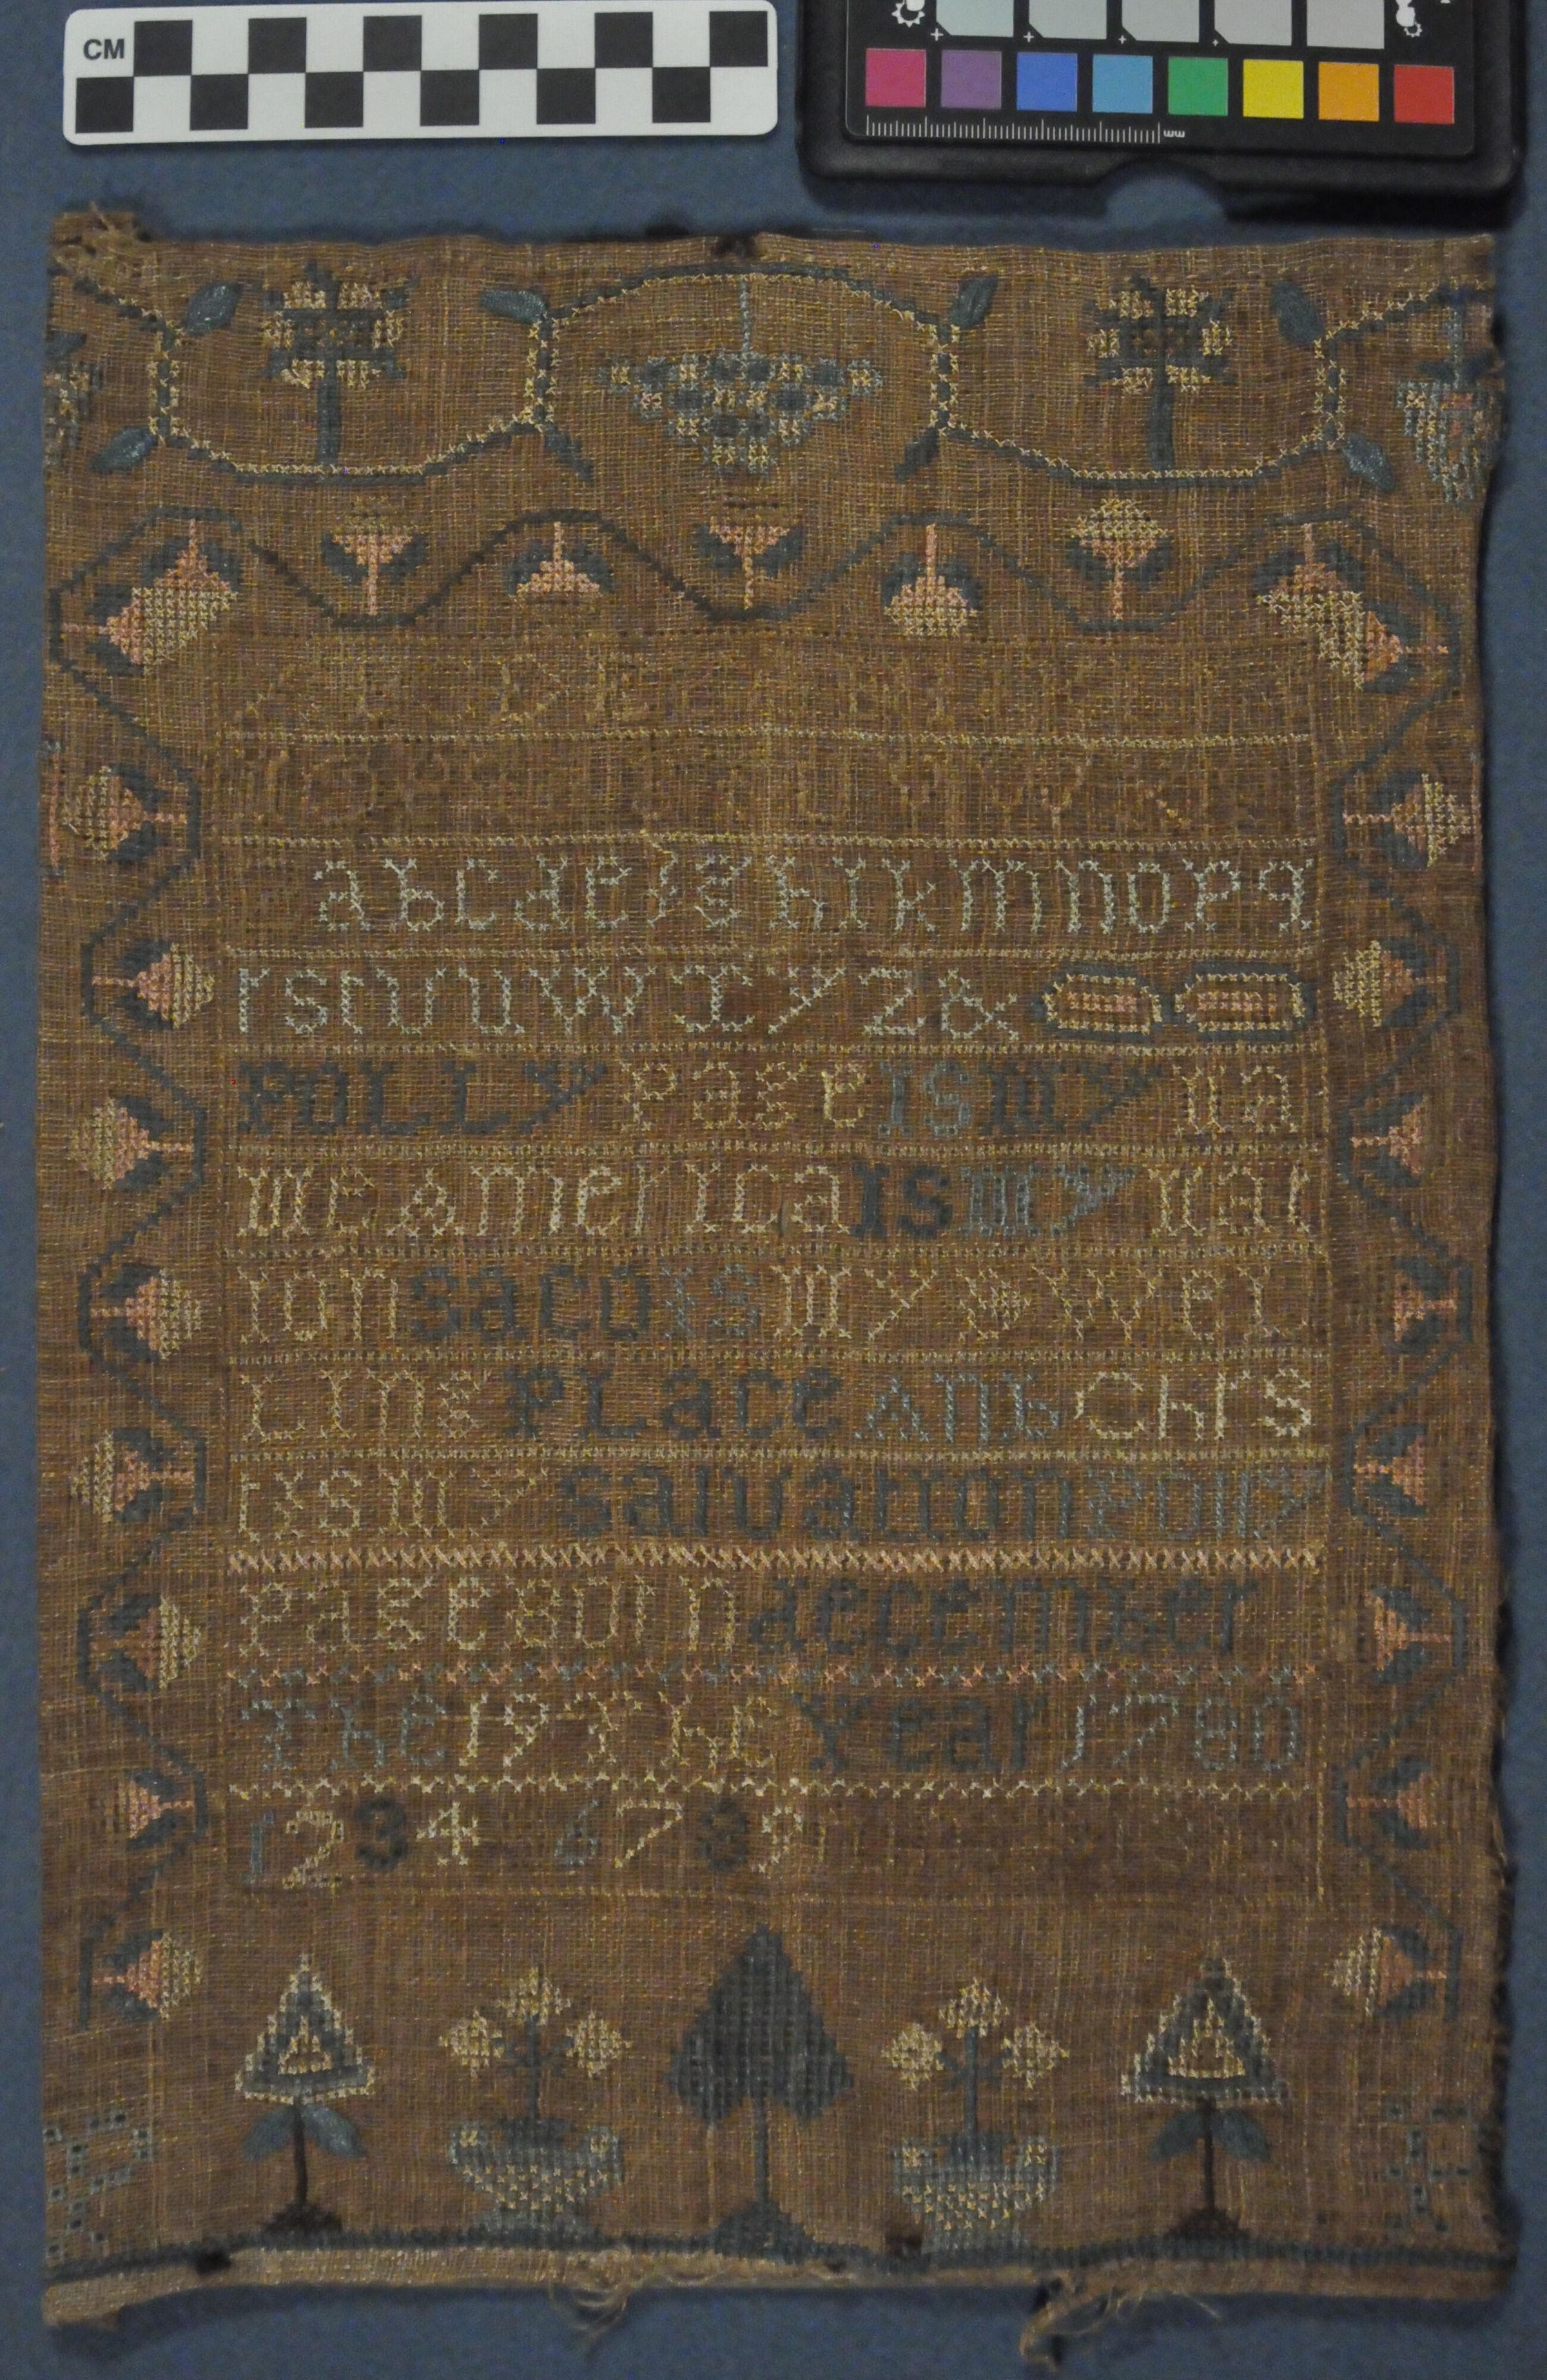 CM
mm
abcdefghikmnopq
rstvuwxyz&
Polly Page is my na
me America is my nat
ion saco is my Dwel
Ling PLace And Chrs
t is my salvation Polly
Page Born december
The 19 The Year 1780
1 2 3 4 6 7 8 9